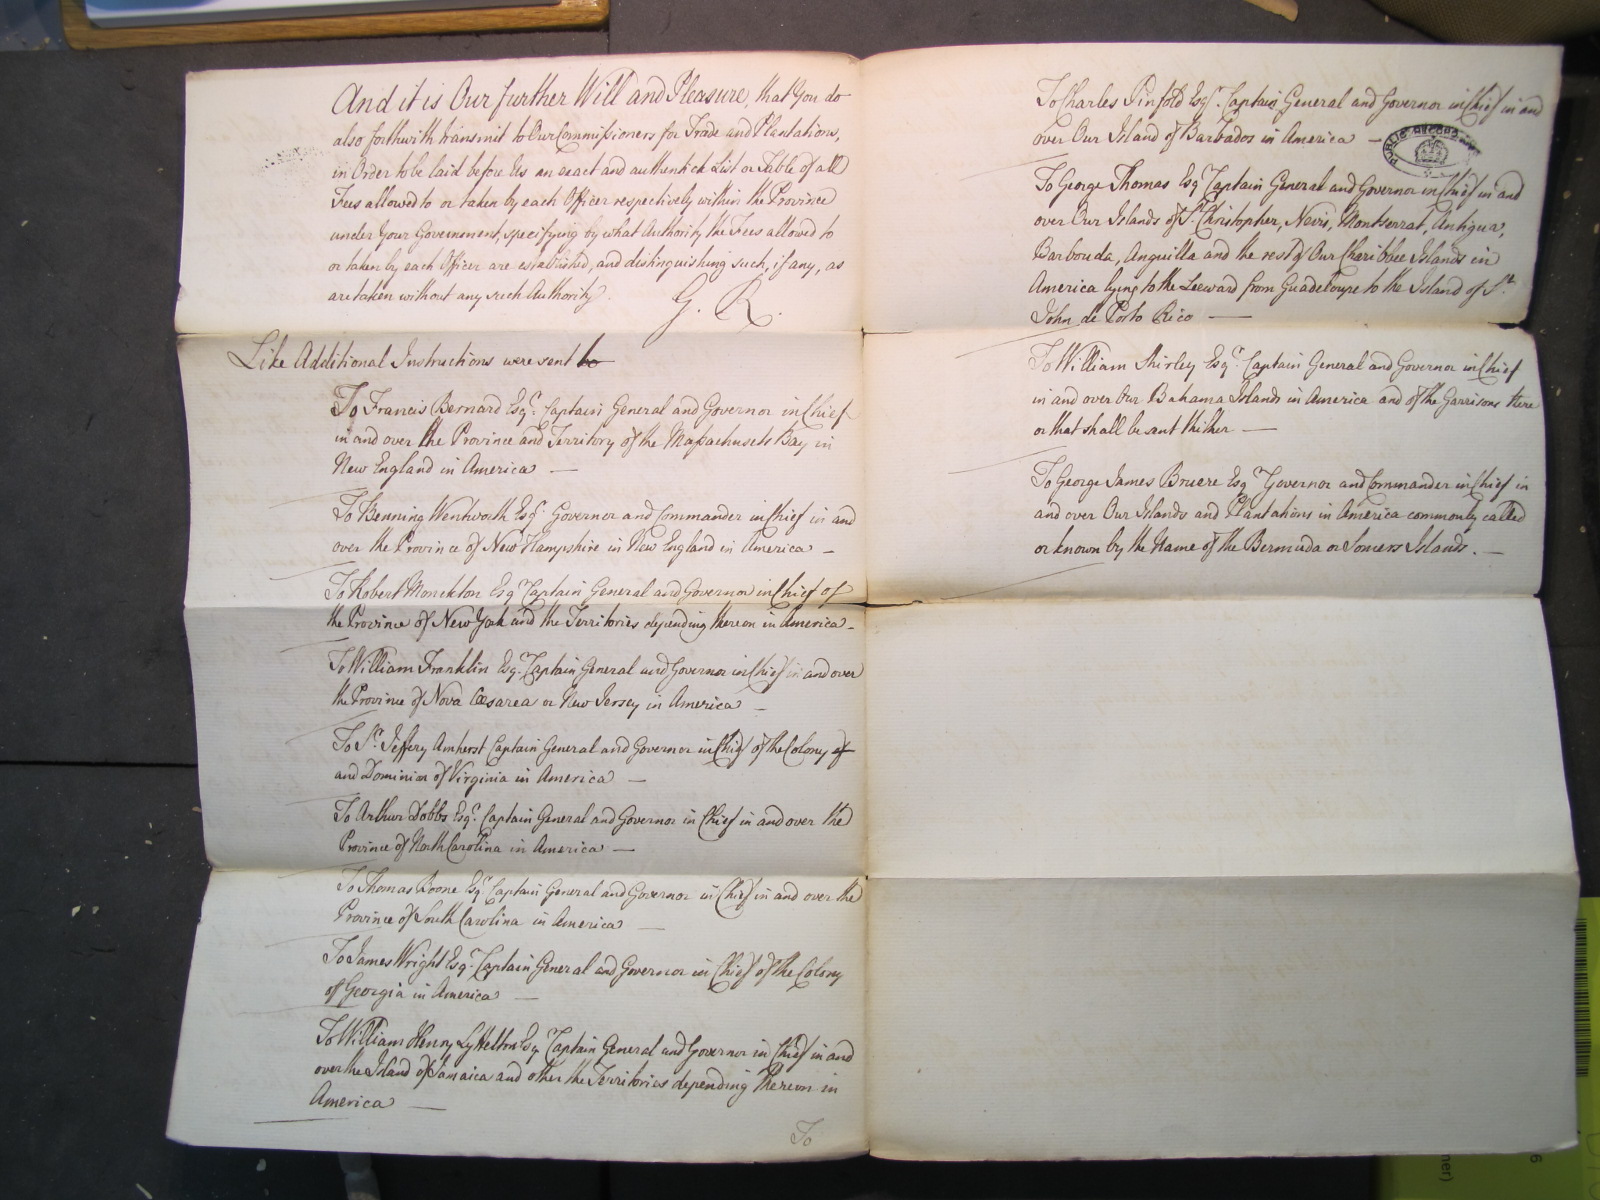 And it is Our further Will and Pleasure, that You do
also forthwith transmit to Our Commissioners for Trade and Plantations,
in Order to be laid before Us an exact and authentick List or Table of all
Fees allowed to or taken by each Officer respectively within the Province
under Your Government, specifying by what Authority the Fees allowed to
or taken by each Officer are established, and distinguishing such, if any, as
are taken without any such Authority.
G. R.
Like Additional Instructions were sent to
To Francis Bernard Esqr. Captain General and Governor in Chief
in and over the Province and Territory of the Massachusets Bay in
New England in America —
To Benning Wentworth Esqr. Governor and Commander in Chief in and
over the Province of New Hampshire in New England in America —
To Robert Monckton Esqr Captain General and Governor in Chief of
the Province of New York and the Territories depending thereon in America —
To William Franklin Esqr. Captain General and Governor in Chief in and over
the Province of Nova Cæsarea or New Jersey in America —
To Sr. Jeffery Amherst Captain General and Governor in Chief of the Colony of
and Dominion of Virginia in America —
To Arthur Dobbs Esqr. Captain General and Governor in Chief in and over the
Province of North Carolina in America —
To Thomas Boone Esqr Captain General and Governor in Chief in and over the
Province of South Carolina in America —
To James Wright Esqr. Captain General and Governor in Chief of the Colony
of Georgia in America —
To William Henry Lyttelton Esqr Captain General and Governor in Chief in and
over the Island of Jamaica and other the Territories depending thereon in
America —
To
To Charles Pinfold Esqr. Captain General and Governor in Chief in and
over Our Island of Barbados in America —
PUBLIC RECORD
To George Thomas Esqr Captain General and Governor in Chief in and
over Our Islands of St Christopher, Nevis, Montserrat, Antigua,
Barbouda, Anguilla and the rest of Our Charibbee Islands in
America lying to the Leeward from Guadeloupe to the Island of St.
John de Porto Rico —
To William Shirley Esqr. Captain General and Governor in Chief
in and over Our Bahama Islands in America and of the Garrisons there
or that shall be sent thither —
To George James Bruere Esqr Governor and Commander in Chief in
and over Our Islands and Plantations in America commonly called
or known by the Name of the Bermuda or Somers Islands. —